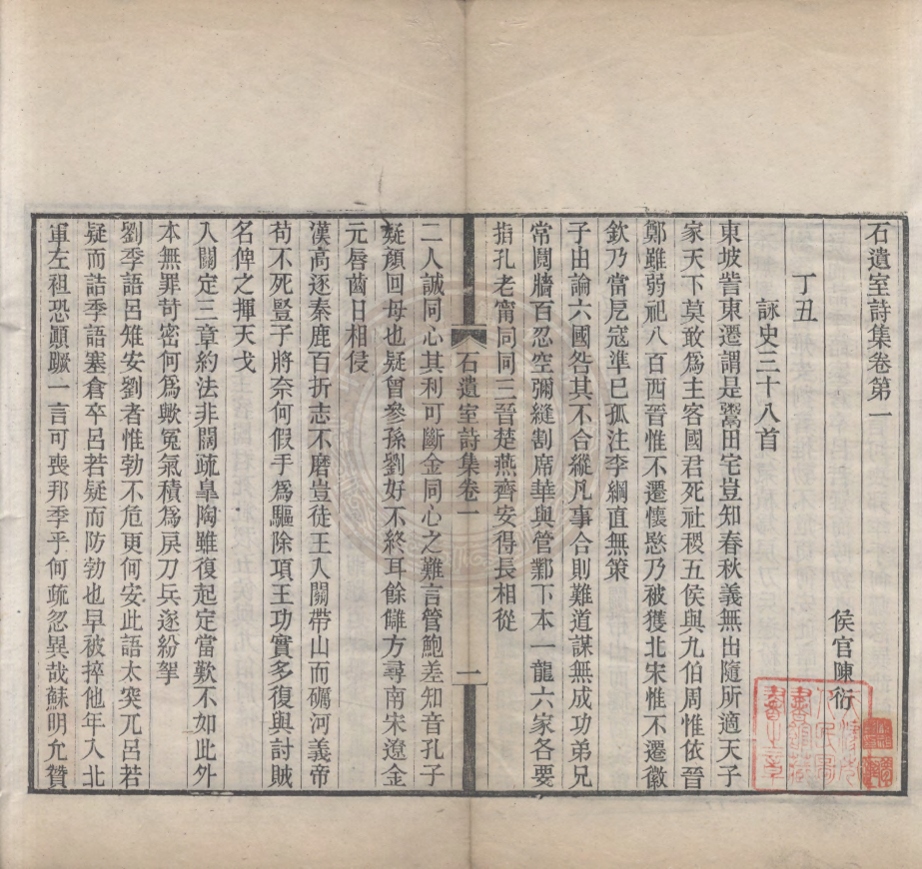 石遺室詩集卷第一
侯官陳衍
丁丑
詠史三十八首
東坡訾東遷謂是鬻田宅豈知春秋義無出隨所適天子
家天下莫敢爲主客國君死社稷五侯與九伯周惟依晉
鄭雖弱祀八百西晉惟不遷懷愍乃被獲北宋惟不遷徽
欽乃當戹寇準已孤注李綱直無策
子由論六國咎其不合縱凡事合則難道謀無成功弟兄
常鬩牆百忍空彌縫割席華與管酆下本一龍六家各要
指孔老甯同同三晉楚燕齊安得長相從
石遺室詩集卷一
一
二人誠同心其利可斷金同心之難言管鮑差知音孔子
疑顏回母也疑曾參孫劉好不終耳餘讎方尋南宋遼金
元唇齒日相侵
漢高逐秦鹿百折志不磨豈徒王入關帶山而礪河義帝
苟不死豎子將奈何假手爲驅除項王功實多復與討賊
名俾之揮天戈
入關定三章約法非闊疏皐陶雖復起定當歎不如此外
本無罪苛密何爲歟冤氣積爲戾刀兵逐紛挐
劉季語呂雉安劉者惟勃不危更何安此語太突兀呂若
疑而詰季語塞倉卒呂若疑而防勃也早被捽他年入北
軍左袒恐顚蹶一言可喪邦季乎何疏忽異哉蘇明允贊